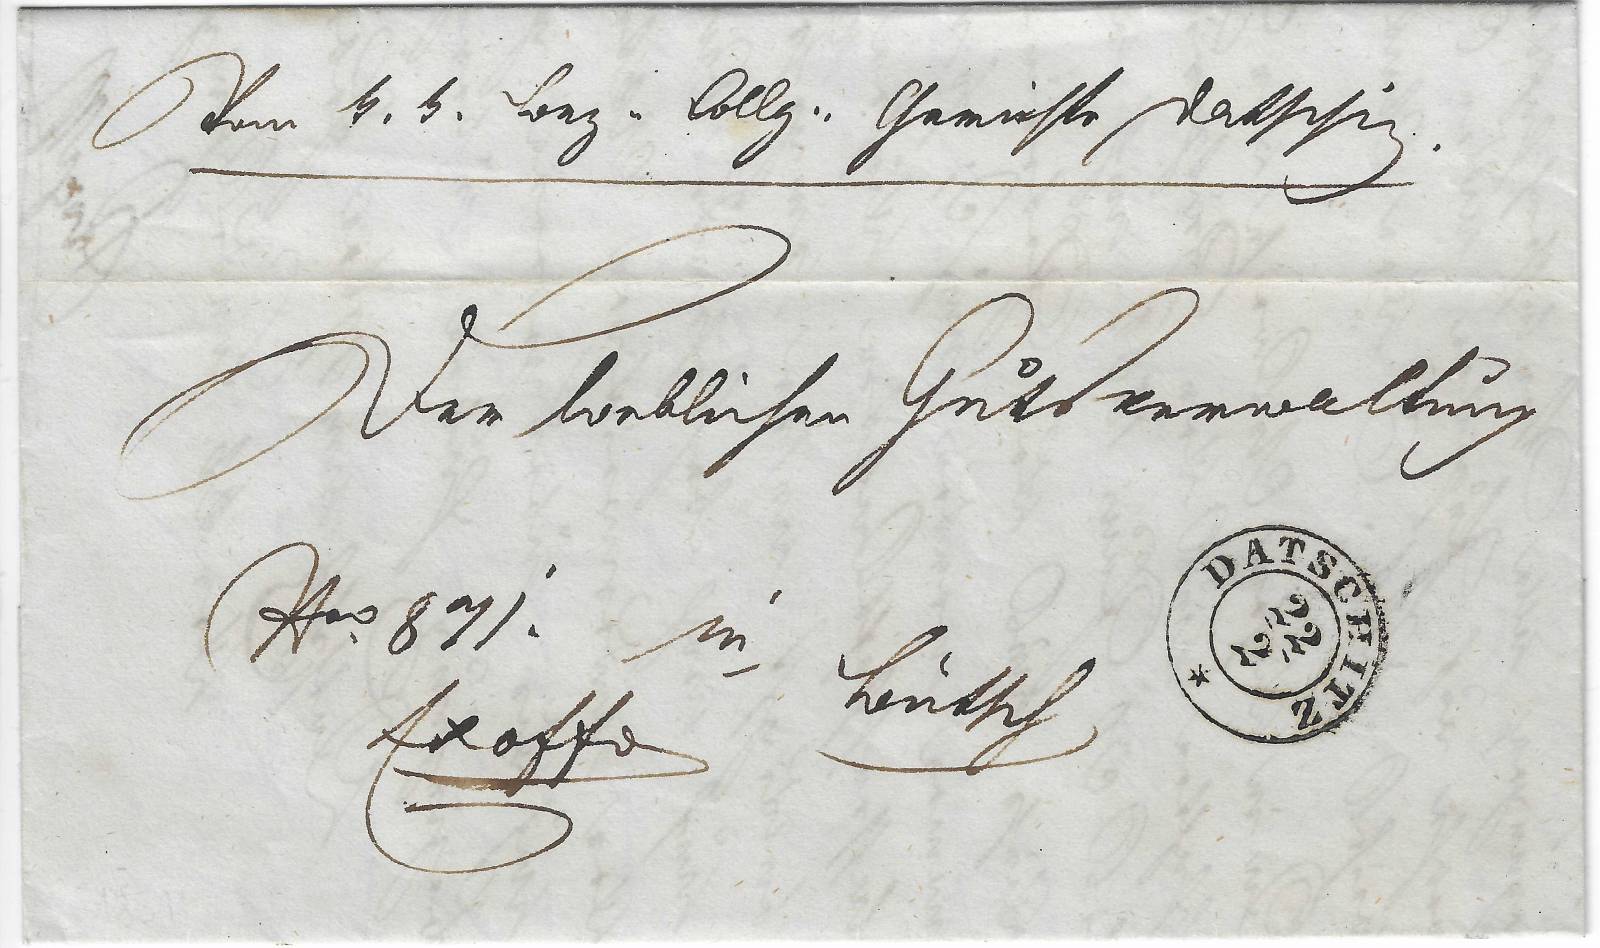 Vom k. k. Bez. Collg. Gerichte Datschitz.
Der loeblichen Gutsverwaltung
Nro. 871. in
Exoffo Leutsch
DATSCHITZ
22
2